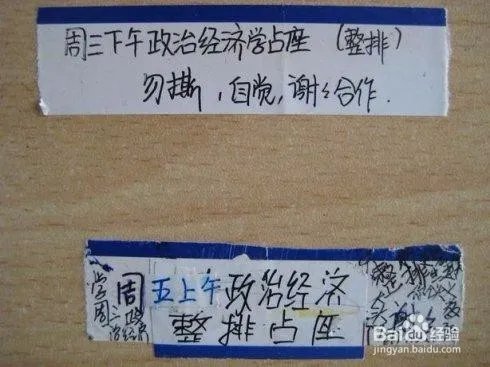 周三下午政治经济学占座（整排）
勿撕，自觉，谢谢合作.
周五上午政治经济
整排占座
Baidu经验
jingyan.baidu.com